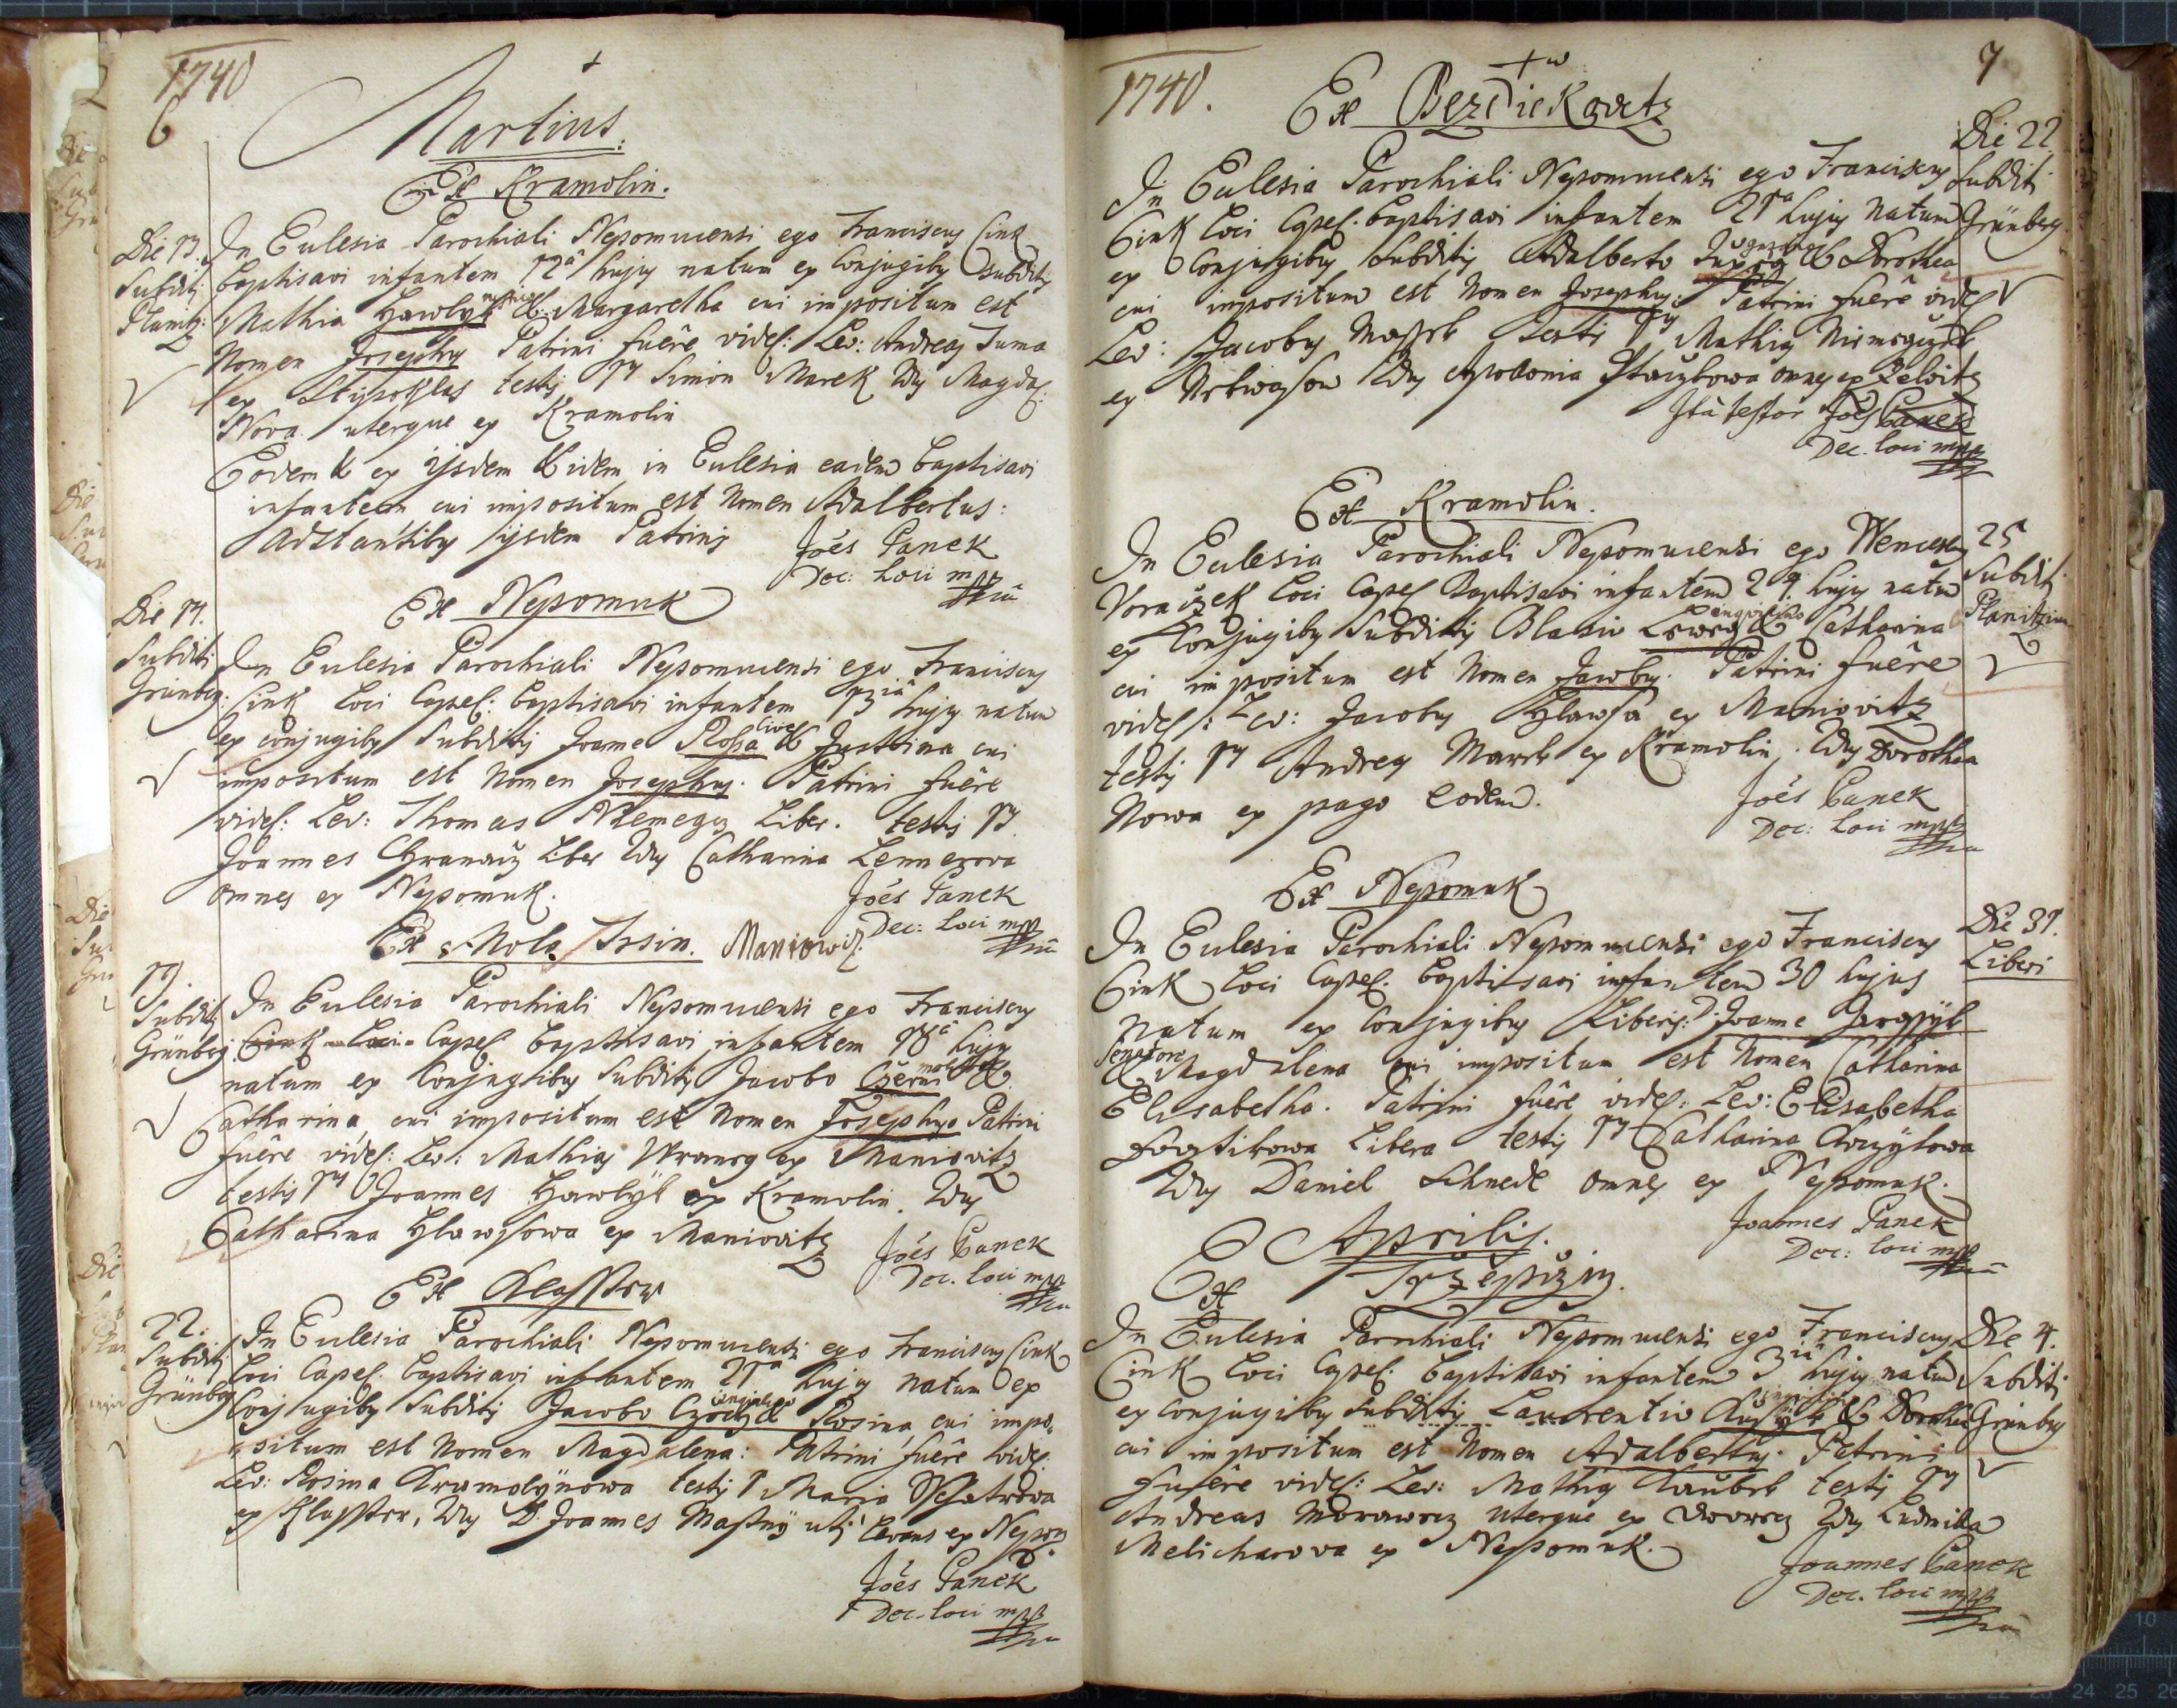 1740
6
Martius.
Ex Kramolin.
Die 13.
Subditi
Planitz:
In Eclesia Parochiali Nepomucensi ego Franciscus Cink
baptisavi infantem 12â hujus natum ex Conjugibus Subditis
Mathia Hawlyk & Margaretha cui impositum est
Nomen Josephus Patrini fuêre videl: Lev: Andreas Tuma
ex testis 1us Simon Marek 2dus Magdal:
Nova uterque ex Kramolin
Eodem & ex ijsdem & idem in Eclesia eadem baptisavi
infantem cui impositum est Nomen Adalbertus:
Adstantibus ijsdem Patrinis
Joês Panek
Dec: Loci mpp
Ex Nepomuk
Die 14.
Subditi
Grünberg.
In Eclesia Parochiali Nepomucensi ego Franciscus
Cink Loci Capel: baptisavi infantem 13tiâ hujus natum
ex conjugibus Subditis Joanne Rossa cive & Justina cui
impositum est Nomen Josephus. Patrini fuêre
videl: Lev: Thomas Niemegcz Liber. testis 1us
Joannes Liber 2dus Catharina Lennerova
omnes ex Nepomuk.
Joês Panek
Dec: Loci mpp
Ex Mola Irsin. Maniowicz
17.
Subditi
Grünberg
In Eclesia Parochiali Nepomucensi ego Franciscus
Cink Loci Capel baptisavi infantem 16â hujus
natum ex Conjugibus Subditis Jacobo Czerni &
Catharina, cui impositum est Nomen Josephus Patrini
fuêre videl: Lev: Mathias Wraneg ex Maniovitz
testis 1us Joannes Hawlyk ex Kramolin. 2dus
Catharina Hlawsowa ex Maniovitz
Joês Panek
Dec. Loci mpp
Ex Klasster
22.
Subditi
Grünberg
In Eclesia Parochiali Nepomucensi ego Franciscus Cink
Loci Capel. baptisavi infantem 21â hujus natum ex
Conjugibus Subditis Jacobo & Rosina, cui impo-
situm est Nomen Magdalena: Patrini fuêre videl:
Lev: Rosina Kramolynowa testis 1 Maria
ex Klasster, 2dus D. Joannes Mastny uti Civis ex Nepom
Joês Panek
Dec. Loci mpp
1740.
7
Ex Bezdiekowetz
Die 22
Subditi
Grünberg
In Eclesia Parochiali Nepomucensi ego Franciscus
Cink Loci Capel. baptisavi infantem 21â hujus Natum
ex Conjugibus Subditis Adalberto & Dorothea
cui impositum est Nomen Josephus: Patrini fuêre videl
Lev: Jacobus testis 1us Mathias
ex 2dus Apolonia omnes ex
Ita testor Joês Panek
Dec. Loci mpp
Ex Kramolin.
25
Subditi
Planitzium
In Eclesia Parochiali Nepomucensi ego Wenceslaus
Voraczek Loci Capel Baptisavi infantem 24. hujus natum
ex Conjugibus Subditis Blasio & Catharina
cui impositum est Nomen Jacobus. Patrini fuêre
videl: Lev: Jacobus Hlawsa ex Maniovitz
testis 1us Andreas Marek ex Kramolin. 2dus Dorothea
Nowa ex pago eodem.
Joês Panek
Dec: Loci mpp
Ex Nepomuk
Die 31.
Liberi
In Eclesia Parochiali Nepomucensi ego Franciscus
Cink Loci Capel. baptisavi infantem 30 hujus
Natum ex Conjugibus Liberis: D: Joanne
Senatore
& Magdalena cui impositum est Nomen Catharina
Elisabetha. Patrini fuêre videl: Lev: Elisabetha
Libera testis 1us Catharina
2dus Daniel Schnedl omnes ex Nepomuk.
Joannes Panek
Dec: Loci mpp
Aprilis.
Ex Trzepczicz.
Die 4.
Subditi
Grünberg
In Eclesia Parochiali Nepomucensi ego Franciscus
Cink Loci Capel. baptisavi infantem 3tiâ hujus natum
ex Conjugibus Subditis Laurentio & Dorothea
cui impositum est Nomen Adalbertus. Patrini
fuêre videl: Lev: Mathias testis 1us
Andreas Morawecz uterque ex Dworecz 2dus Ludmilla
Melicharova ex Nepomuk.
Joannes Panek
Dec. Loci mpp